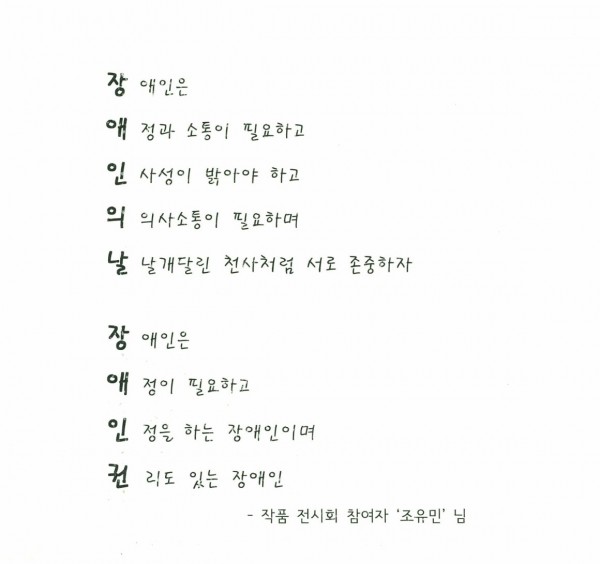 장 애인은
애 정과 소통이 필요하고
인 사성이 밝아야 하고
의 의사소통이 필요하며
날 날개달린 천사처럼 서로 존중하자
장 애인은
애 정이 필요하고
인 정을 하는 장애인이며
권 리도 있는 장애인
- 작품 전시회 참여자 ‘조유민’ 님